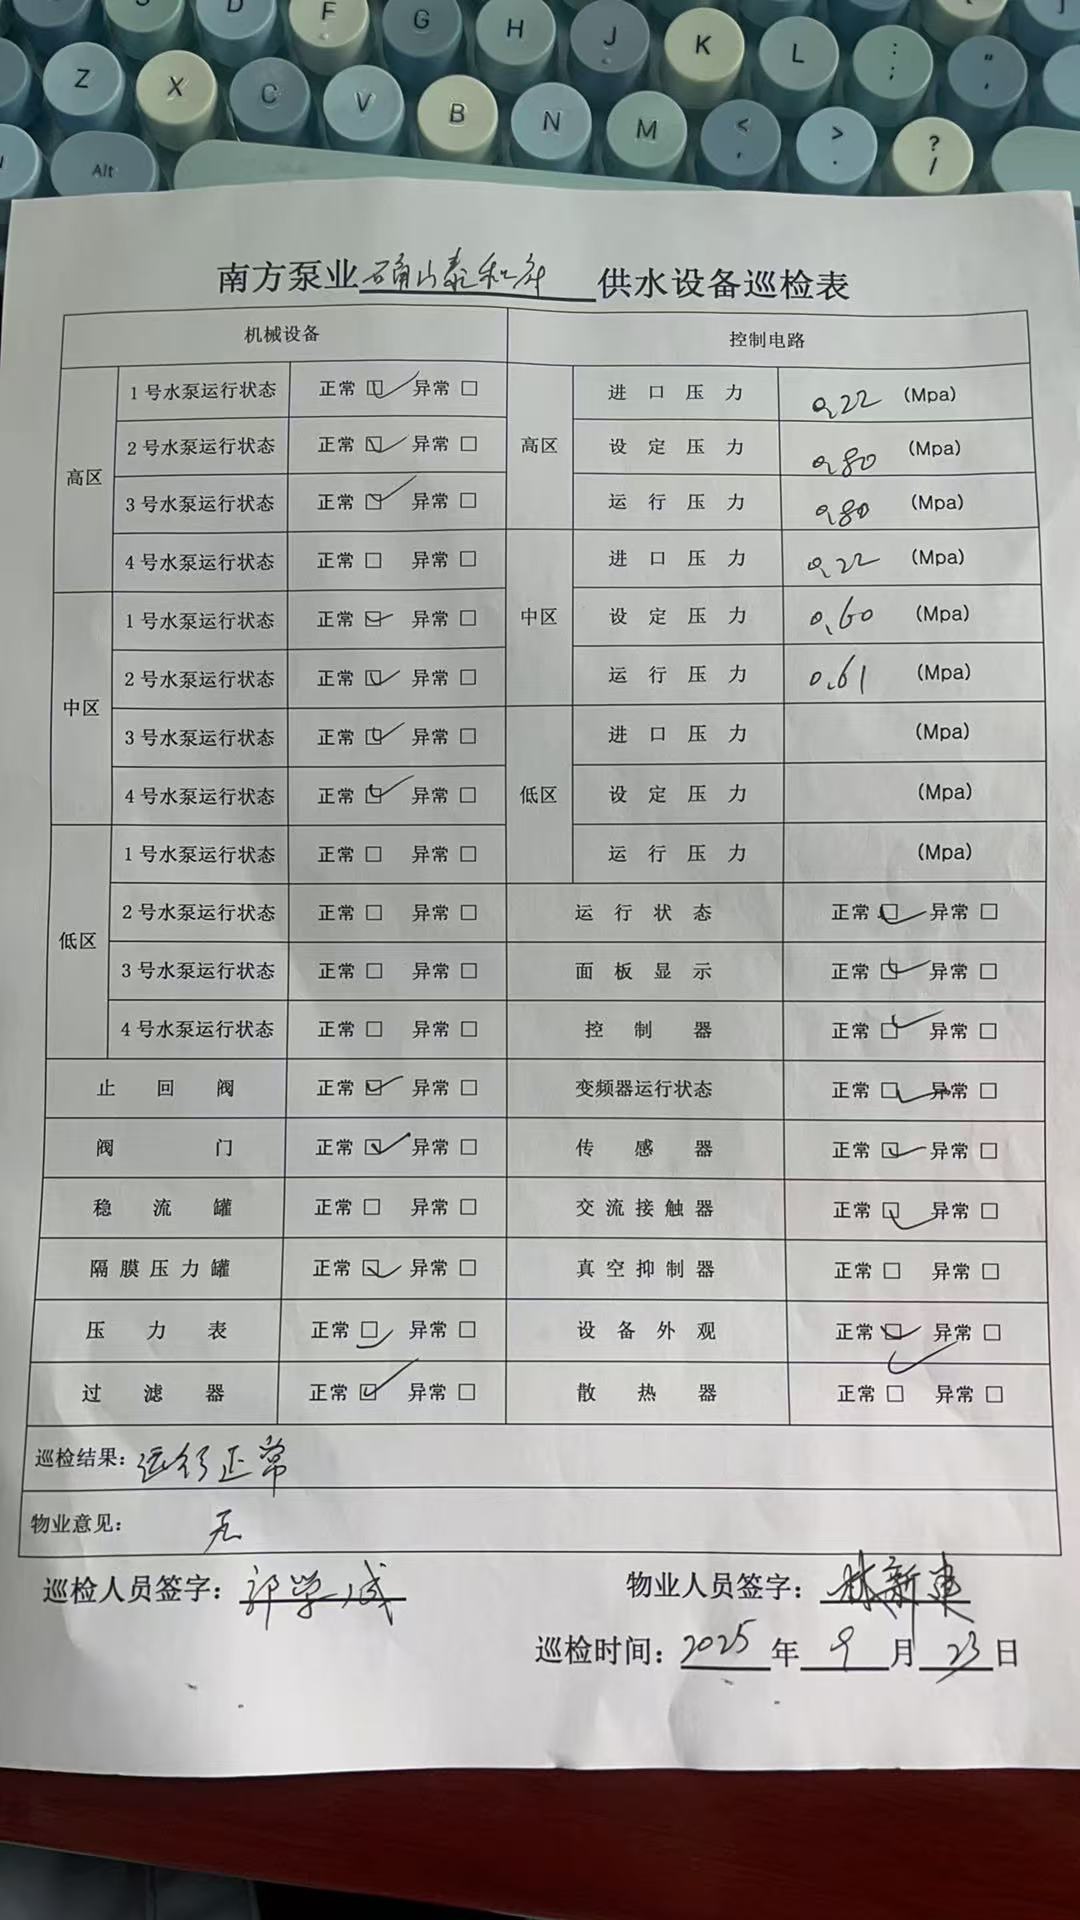 S D F G H J K L : ;
" '
Z X C V B N M < , > . ? /
Alt
南方泵业确山泰和府供水设备巡检表
机械设备 控制电路
高区 1号水泵运行状态 正常☑ 异常□ 高区 进口压力 0.22 (Mpa)
2号水泵运行状态 正常☑ 异常□ 设定压力 0.80 (Mpa)
3号水泵运行状态 正常☑ 异常□ 运行压力 0.80 (Mpa)
4号水泵运行状态 正常□ 异常□ 中区 进口压力 0.22 (Mpa)
中区 1号水泵运行状态 正常☑ 异常□ 设定压力 0.60 (Mpa)
2号水泵运行状态 正常☑ 异常□ 运行压力 0.61 (Mpa)
3号水泵运行状态 正常☑ 异常□ 低区 进口压力 (Mpa)
4号水泵运行状态 正常☑ 异常□ 设定压力 (Mpa)
低区 1号水泵运行状态 正常□ 异常□ 运行压力 (Mpa)
2号水泵运行状态 正常□ 异常□ 运行状态 正常☑ 异常□
3号水泵运行状态 正常□ 异常□ 面板显示 正常☑ 异常□
4号水泵运行状态 正常□ 异常□ 控制器 正常☑ 异常□
止回阀 正常☑ 异常□ 变频器运行状态 正常☑ 异常□
阀门 正常☑ 异常□ 传感器 正常☑ 异常□
稳流罐 正常□ 异常□ 交流接触器 正常☑ 异常□
隔膜压力罐 正常☑ 异常□ 真空抑制器 正常□ 异常□
压力表 正常☑ 异常□ 设备外观 正常☑ 异常□
过滤器 正常☑ 异常□ 散热器 正常☑ 异常□
巡检结果：运行正常
物业意见： 无
巡检人员签字：郭学成 物业人员签字：林新建
巡检时间：2025年9月23日